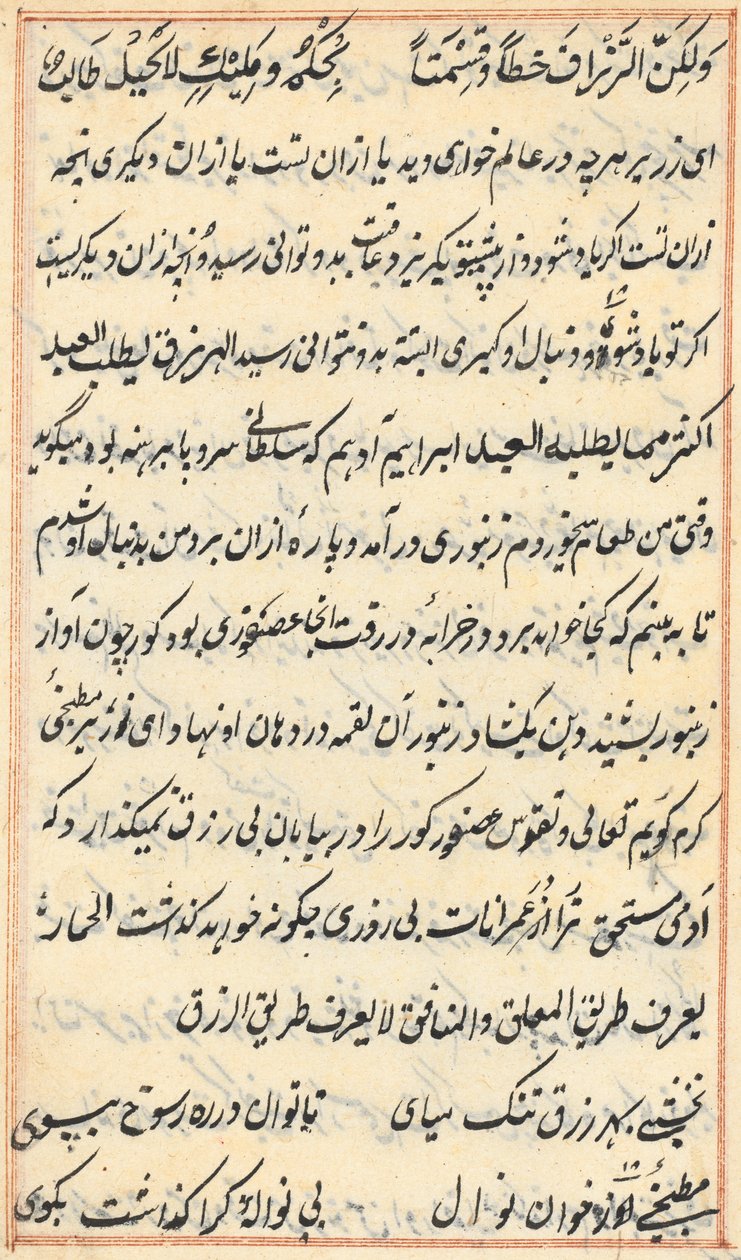 وَلٰكِنَّ الرِّزْقَ خَطاً وَقِسْمَتاً بِحُكْمِ وَمَلِيْكٍ لا يحيلُ طَالِبُ
ای زریر هرچه در عالم خواهی دید یا از ان تست یا ازان دیکری انچه
ازان تست اکر باد شود و از پیشتو بکریزد عاقبت بدو توانی رسید و انچه ازان دیکریست
اکر تو باد شوی و دنبال او کیری البته بدو نتوانی رسید الهی رزق لیطلب العبد
اکثر مما یطلبه العبد ابراهیم آدهم که سلطانی سروپا برهنه بود میگوید
وقتی من طعام میخوردم زنبوری درآمد و پارهٔ ازان برد من بدنبال او شدم
تا به بینم که کجا خواهد برد در خرابهٔ در رفت انجا عصفوری بود کور چون آواز
زنبور بشنید دهن بکشاد زنبور آن لقمه در دهان او نهاد ای زریر مطبخیٔ
کرم کویم تعالی و تقدس عصفور کور را در بیابان بی رزق نمیکذارد که
آدمی مستحق ترا از عمرانات بی روزی چکونه خواهد کذاشت الحمار
یعرف طریق المعلق والمنافق لا یعرف طریق الرزق
نخشبی بهر رزق تنک میای تا توان در ره رسوخ بپوی
مطبخیٔ از خوان نوال بی نوالهٔ کرا کذاشت بکوی